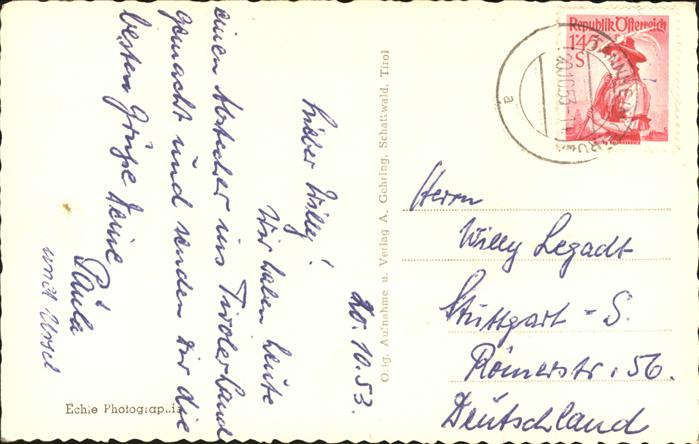 20.10.53.
Lieber Willy!
Wir haben heute
einen Abstecher ins Tirolerland
gemacht und senden Dir die
besten Grüße Deine
Paula
und Ursel
Echte Photographie
Orig. Aufnahme u. Verlag A. Gehring, Schattwald, Tirol
Republik Österreich
1'45
S
TANNHEIM
20.10.53
a
Herrn
Willy Legadt
Stuttgart - S.
Römerstr. 56.
Deutschland